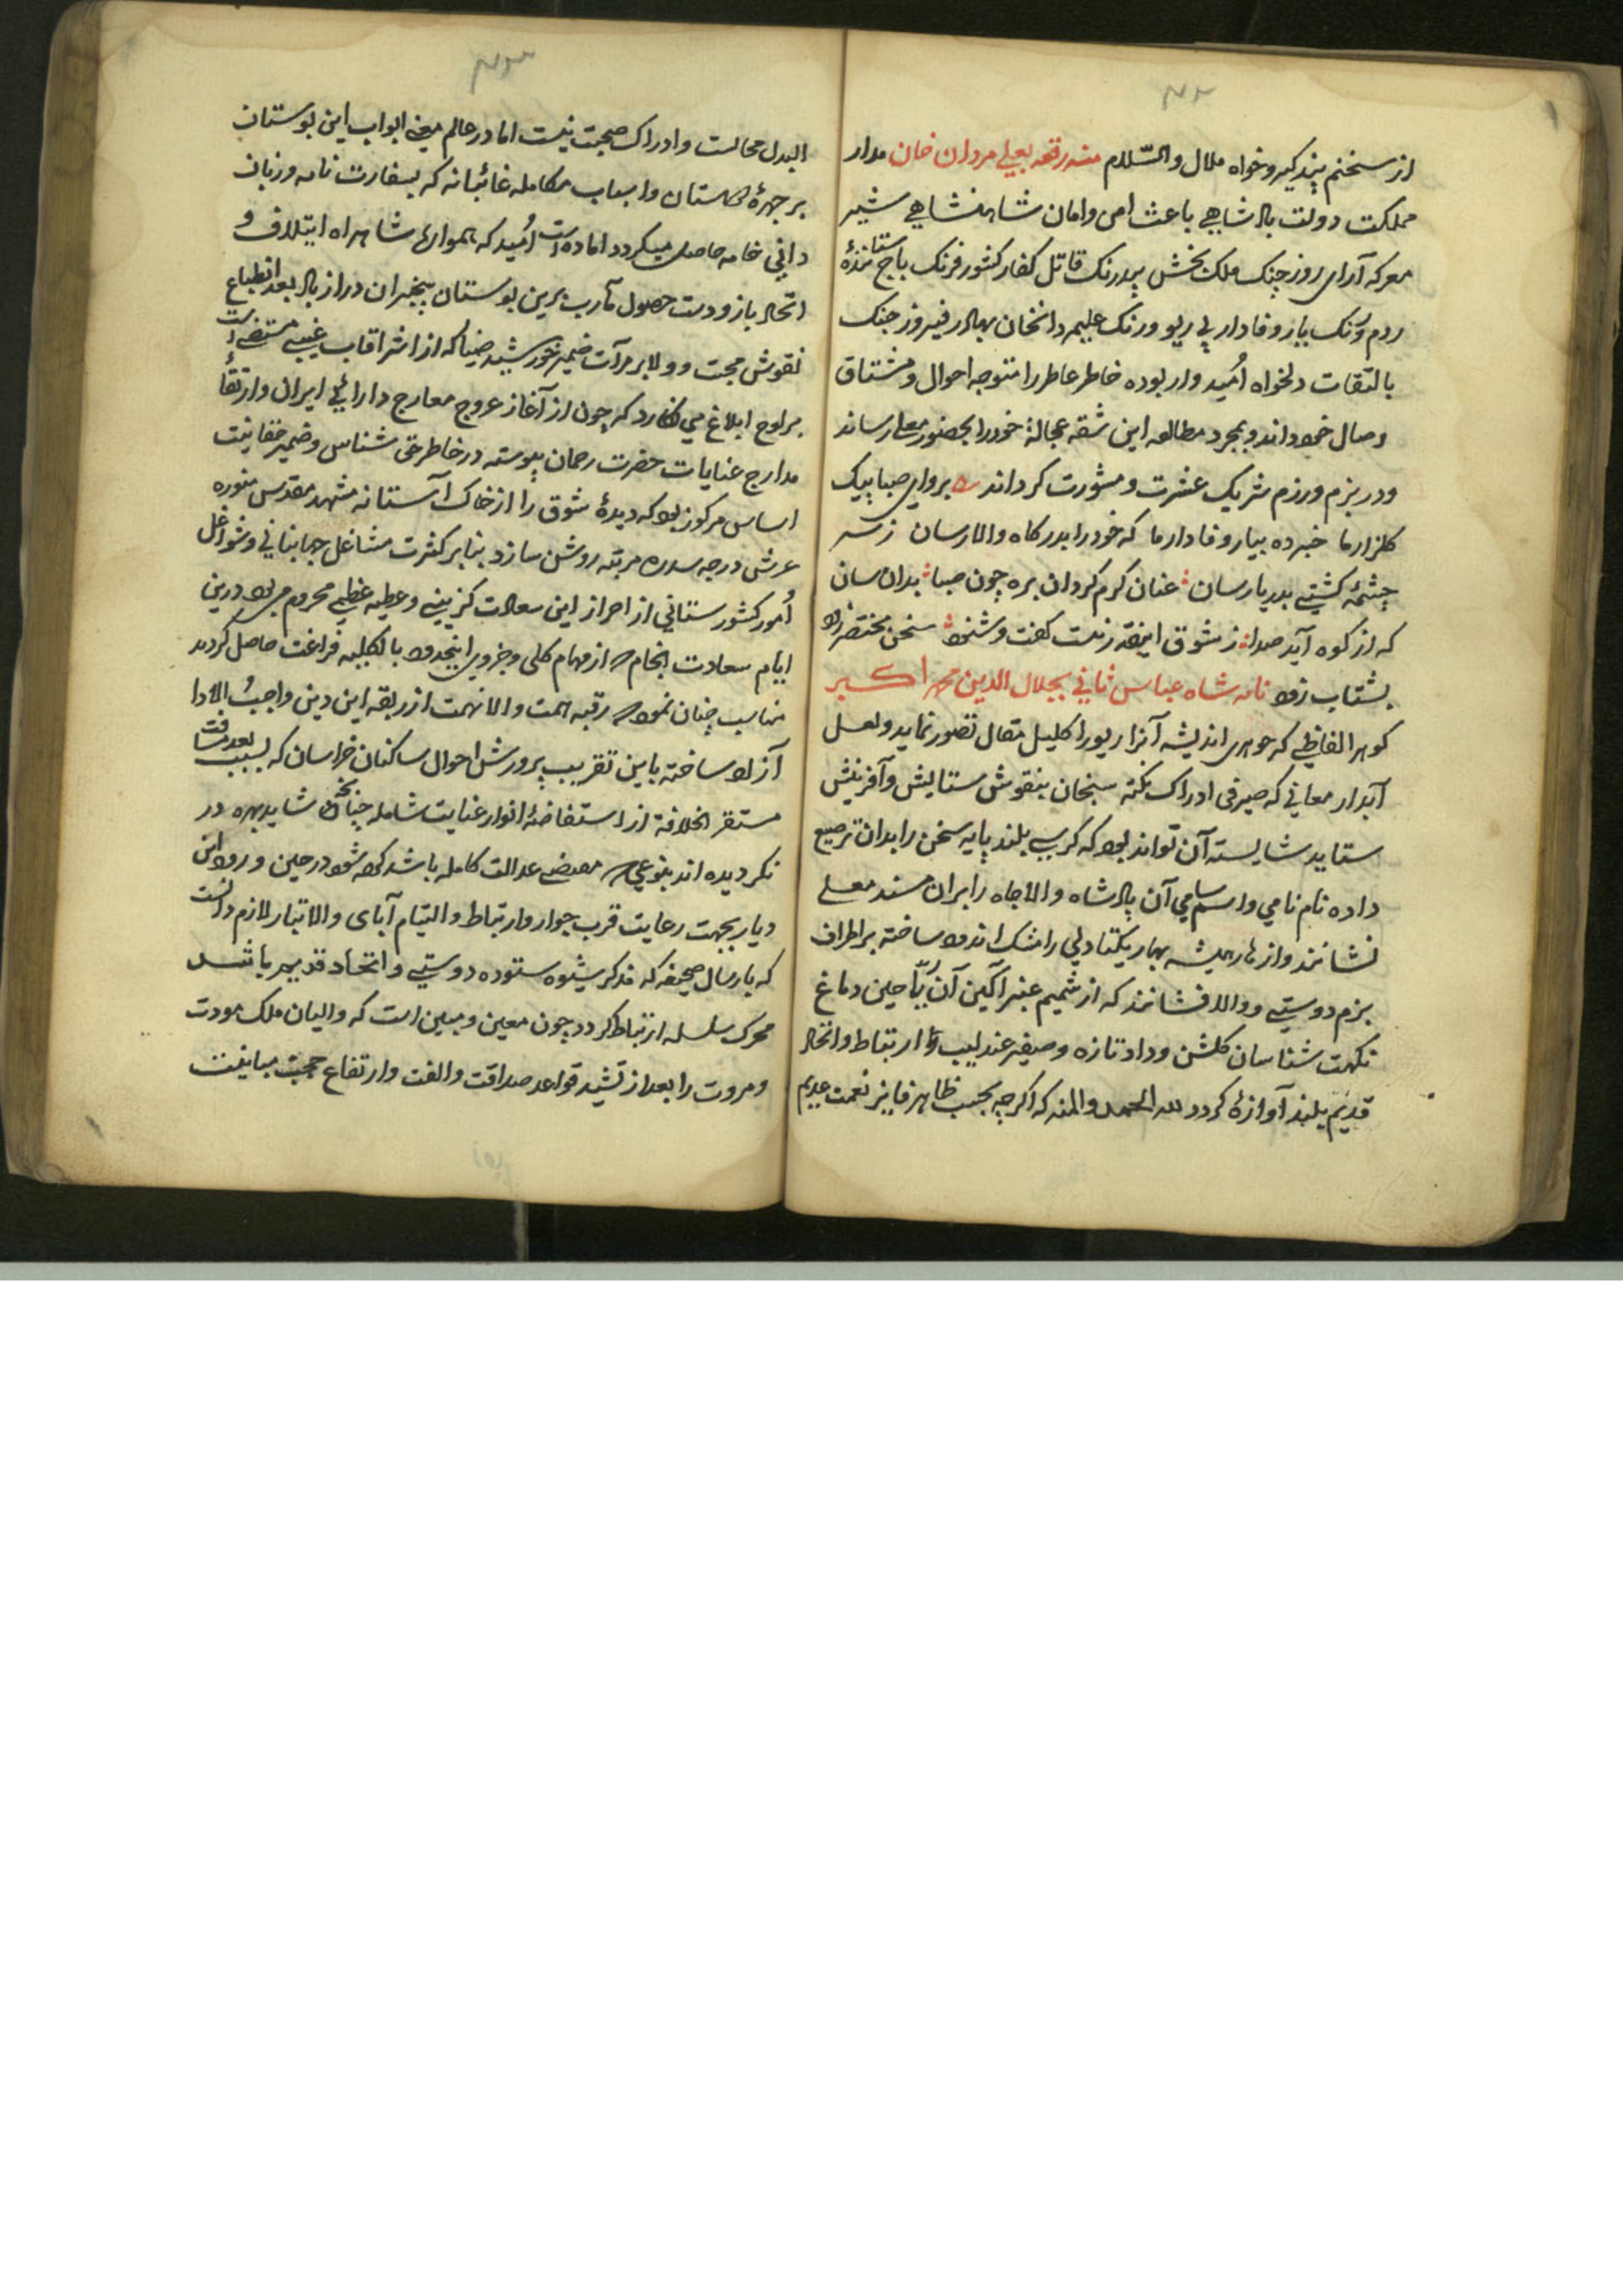 ۴۲
از سخنم پند گیر و خواه ملال والسّلام منه رقعه بعلی مردان خان مدار
مملکت دولت پادشاهی باعث امن و امان شاهنشاهی شیر
معرکه آرای روز جنک ملک بخش بیدرنک قاتل کفار کشور فرنک باج ستانندهٔ
روم و زنک یار وفادار بی ریو و رنک علیمردانخان بهادر فیروز جنک
بالتفات دلخواه اُمیدوار بوده خاطر عاطر را متوجه احوال و مشتاق
وصال خود داند و بمجرد مطالعه این شقه عجالةً خود را بحضور معلی رساند
و در بزم و رزم شریک عشرت و مشورت کرداند برو ای صبا پیک
کلزار ما خبر ده بیار وفادار ما که خود را بدرکاه والا رسان ز سر
چشمهٔ کشتی بدریا رسان عنان کرم کردان بره چون صبا بدان سان
که از کوه آید صدا ز شوق اینقدر زست کفت و شنود سخن مختصر زود
بشتاب زود نامه شاه عباس ثانی بجلال الدین محمد اکبر
کوهر الفاظی که جوهری اندیشه آنرا زیور اکلیل مقال تصور نماید و لعل
آبدار معانی که صیرفی ادراک نکته سنجان بنقوش ستایش و آفرینش
ستاید شایسته آن تواند بود که کرسی بلند پایه سخن را بدان ترصیع
داده نام نامی و اسم سامی آن پادشاه والاجاه را بران مسند معلی
نشانند و ازهار همیشه بهار یکتا دلی را مشک اندود ساخته بر اطراف
بزم دوستی و ولا افشانند که از شمیم عنبر آکین آن ریاحین دماغ
نکهت شناسان کلشن وداد تازه و صفیر عندلیب ارتباط و اتحاد
قدیم بلند آوازه کردد لله الحمد والمنه که اکرچه بحسب ظاهر فایز نعمت عدیم
۴۳
البدل مجالست و ادراک صحبت نیست اما در عالم معنی ابواب این بوستان
بر چهرهٔ کلستان و اسباب مکامله غائبانه که بسفارت نامه و زبان
دانی خامه حاصل میکردد اماده است اُمید که همواره شاهراه ایتلاف و
اتحاد باز و دست حصول مآرب برین بوستان بیخبران دراز باد بعد انطباع
نقوش محبت و ولا بر مرآت ضمیر خورشید ضیا که از اشراقات غیبی مستضی است
بر لوح ابلاغ می نکارد که چون از آغاز عروج معارج دارائی ایران و ارتقاء
مدارج عنایات حضرت رحمان پیوسته در خاطر حق شناس و ضمیر حقانیت
اساس مرکوز بود که دیدهٔ شوق را از خاک آستانه مشهد مقدس منوره
عرش درجه سدره مرتبه روشن سازد بنابر کثرت مشاغل جهانبانی و شواغل
اُمور کشورستانی از احراز این سعادت کزینی و عطیه عظمی محروم می بود درین
ایام سعادت انجام که از مهام کلی و جزوی اینحدود بالکلیه فراغت حاصل کردید
مناسب چنان نمود که رقبه همت والا نهمت از ربقه این دین واجب الادا
آزاد ساخته باین تقریب بپرورش احوال ساکنان خراسان که بسبب بعد مسافت
مستقر الخلافة از استفاضهٔ انوار عنایت شامله چنانچه شاید بهره ور
نکردیده اند بنوعی که مقتضی عدالت کامله باشد کرده شود در حین ورود این
دیار بجهت رعایت قرب جوار و ارتباط و التیام آبای والاتبار لازم دانست
که بارسال صحیفه که مذکر شیوه ستوده دوستی و اتحاد قدیم باشد
محرک سلسله ارتباط کردد چون معین و مبین است که والیان ملک مودت
و مروت را بعد از تشید قواعد صداقت و الفت و ارتفاع حجب مباینت